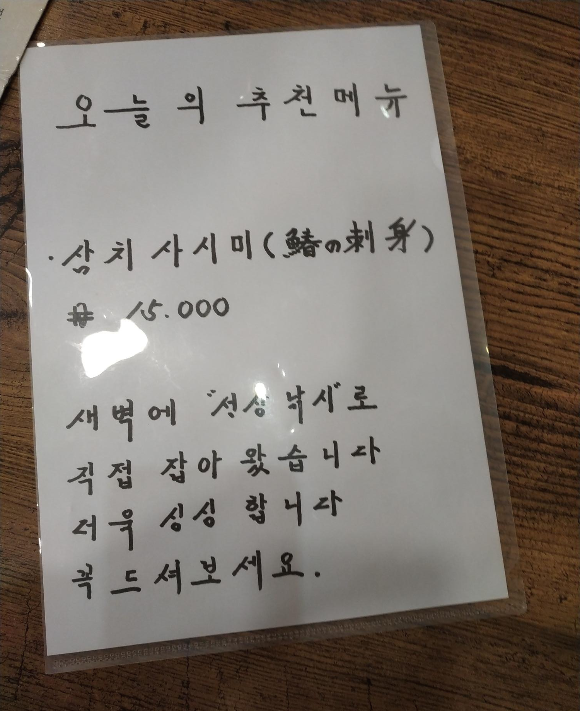 오늘의 추천메뉴
· 삼치 사시미 (鰆の刺身)
₩ 15.000
새벽에 "선상낚시"로
직접 잡아 왔습니다
더욱 싱싱 합니다
꼭 드셔보세요.